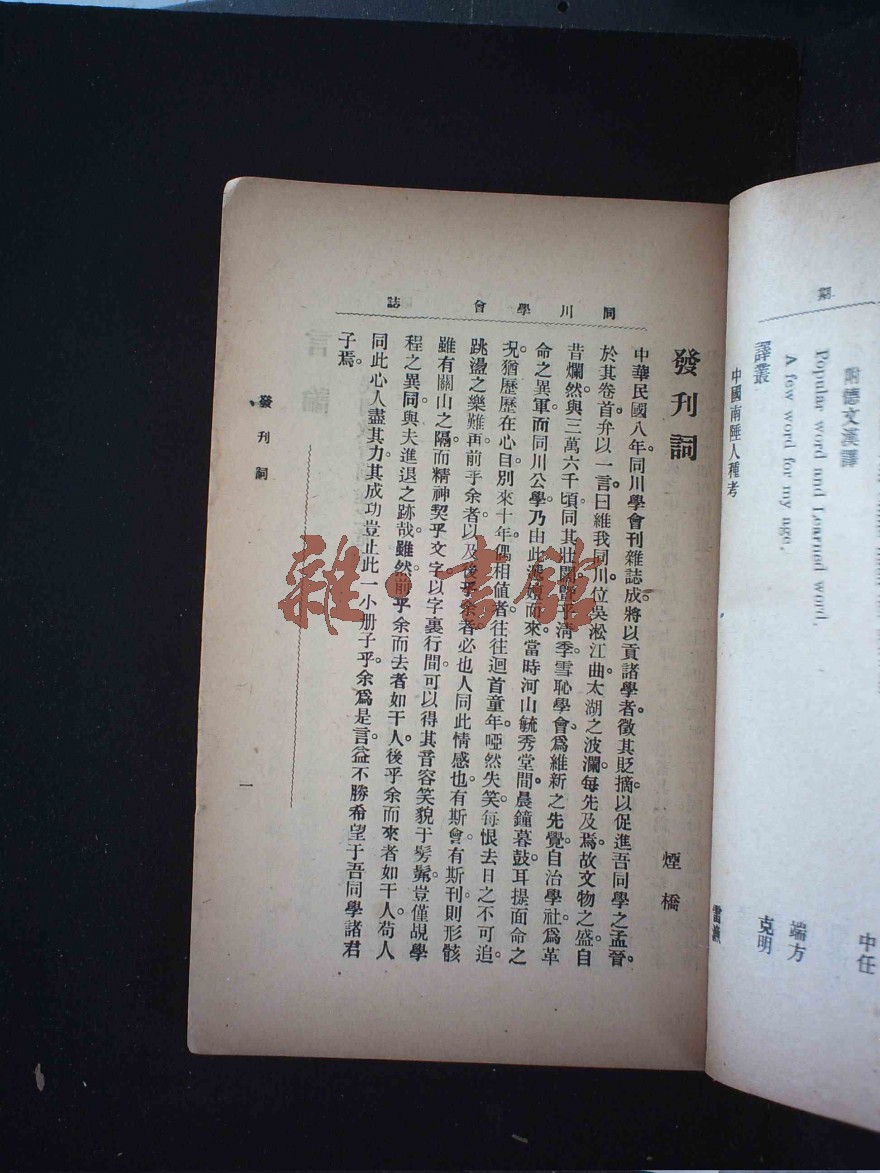 期
附德文漢譯
Popular word and Learned word.
A few word for my age.
譯叢
中國南陲人種考
中任
端方
克明
同川學會誌
發刊詞
煙橋
中華民國八年。同川學會刊雜誌成。將以貢諸學者。徵其貶摘。以促進吾同學之孟晉。
於其卷首。弁以一言曰。維我同川。位吳淞江曲。太湖之波瀾。每先及焉。故文物之盛。自
昔爛然。與三萬六千頃。同其壯闊。暨乎清季。雪恥學會。爲維新之先覺。自治學社。爲革
命之異軍。而同川公學。乃由此遞嬗而來。當時河山毓秀堂間。晨鐘暮鼓。耳提面命之
況。猶歷歷在心目。別來十年。偶相値者。往往迴首童年。啞然失笑。每恨去日之不可追。
跳盪之樂難再。前乎余者。以及後乎余者。必也人同此情感也。有斯會有斯刊。則形骸
雖有關山之隔。而精神契乎文字。以字裏行間。可以得其音容笑貌于髣髴。豈僅覘學
程之異同。與夫進退之跡哉。雖然。前乎余而去者如干人。後乎余而來者如干人。苟人
同此心。人盡其力。其成功豈止此一小册子乎。余爲是言。益不勝希望于吾同學諸君
子焉。
言論
發刊詞
一
雜·書館